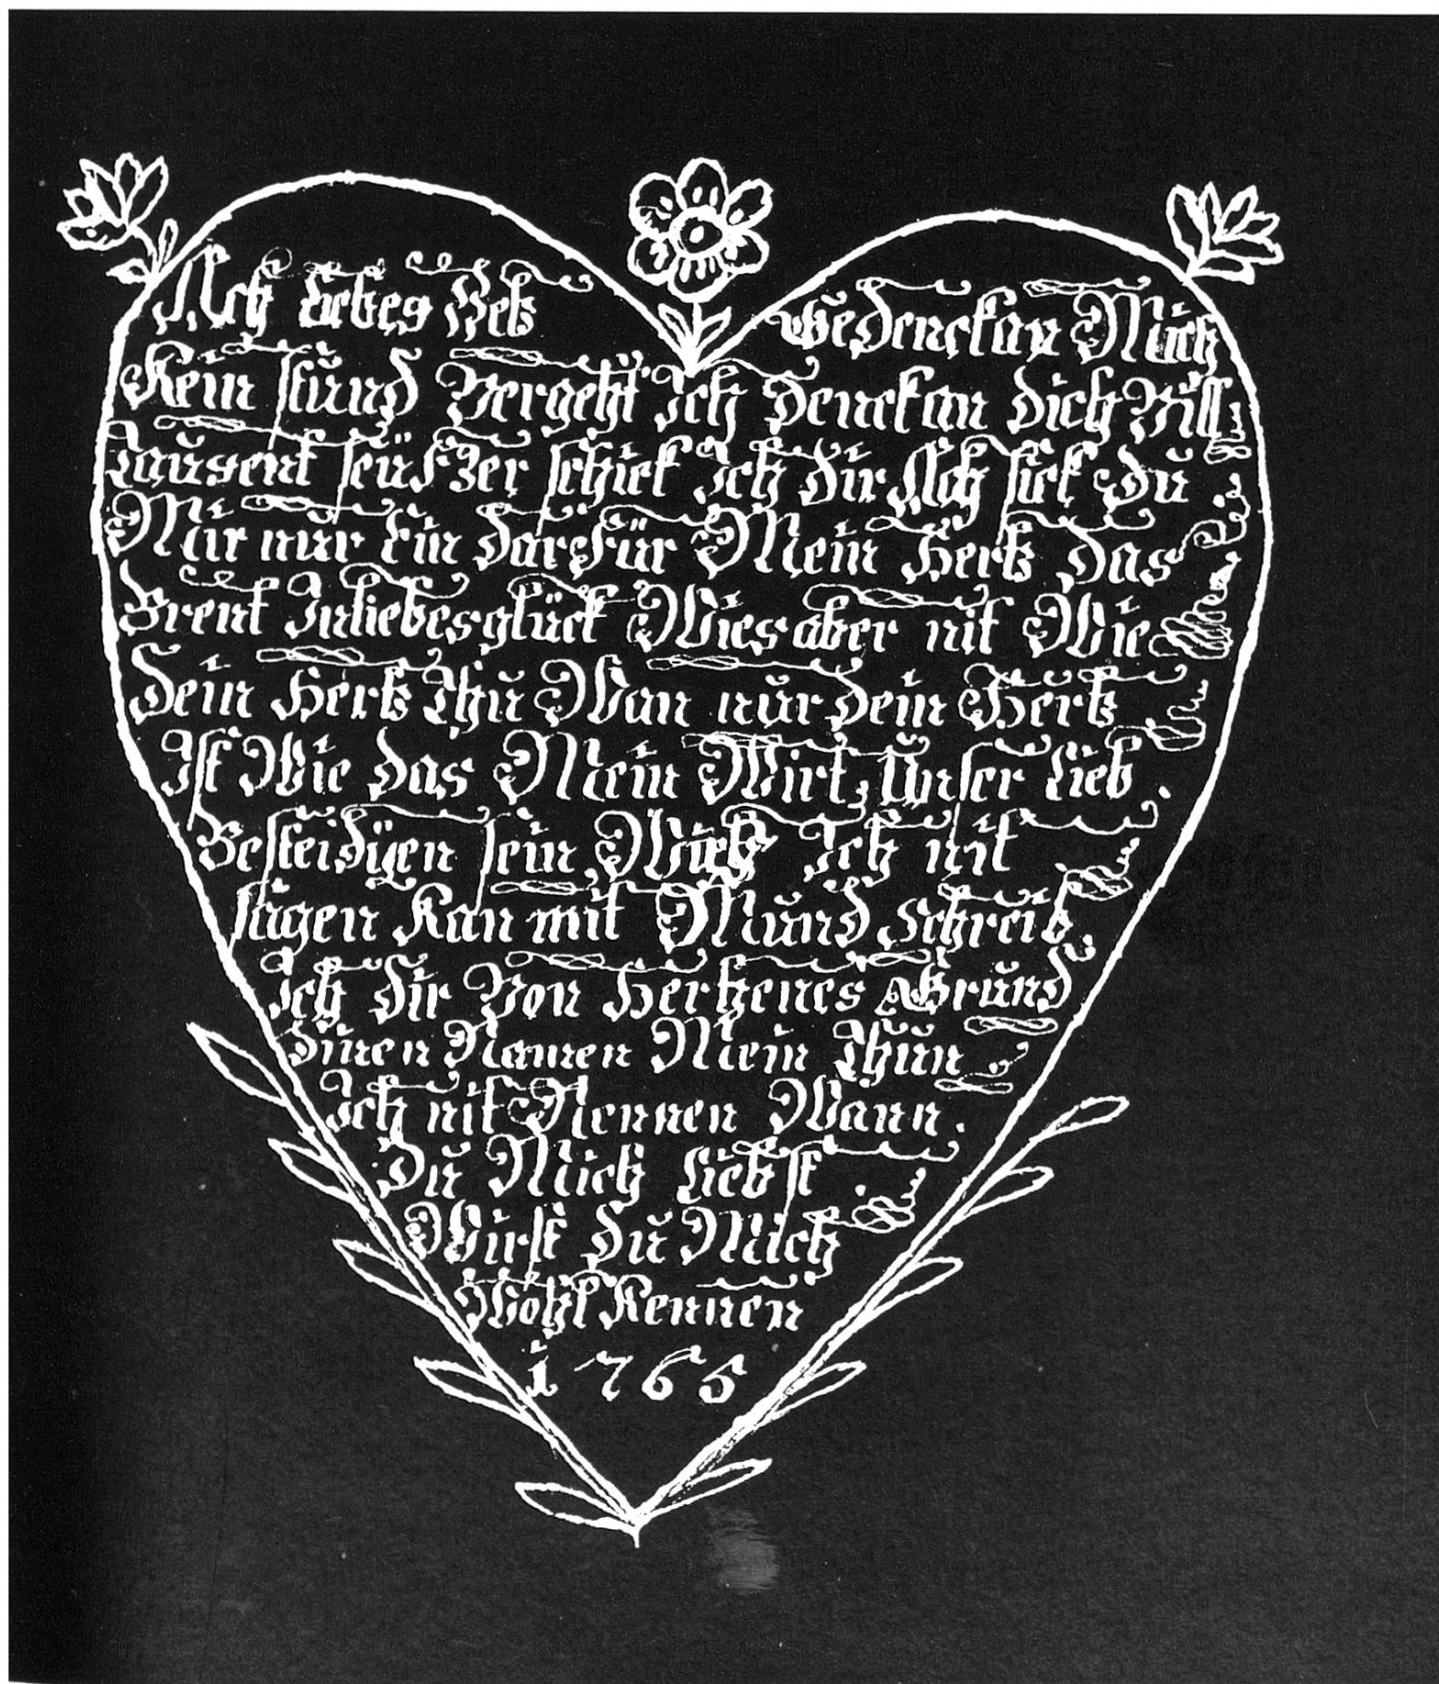 Ach liebes Hetz Gedenck an Mich
Kein stund Vergeht Ich Denck an Dich Vill
Tausent seufzer schick Ich Dir Ach sick Du
Mir nur Ein Darfür Mein Hertz Das
Brent In liebes glück Wies aber nit Wie
Dein Hertz Thu Wan nur Dein Hertz
Ist Wie das Mein Wirt Unser Lieb
Besteidigen sein, Ich nit
sagen Kan mit Mund schreib
Ich Dir Von Hertzenes Grund
Namen Mein Thun
Ich nit Nennen Wann.
Du Mich Liebst
Wirst Du Mich
Wohl Kennen
1765